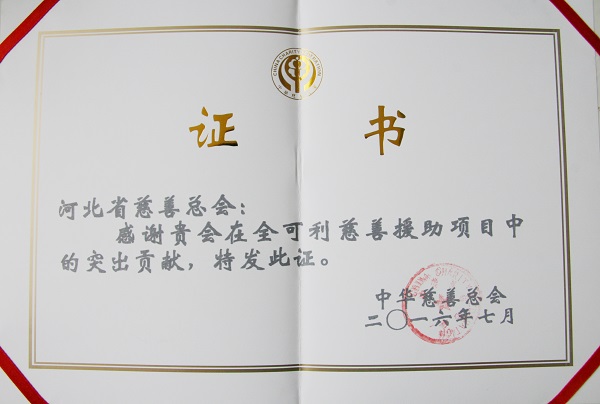 CHINA CHARITY FEDERATION
证 书
河北省慈善总会：
感谢贵会在全可利慈善援助项目中
的突出贡献，特发此证。
中华慈善总会
二〇一六年七月